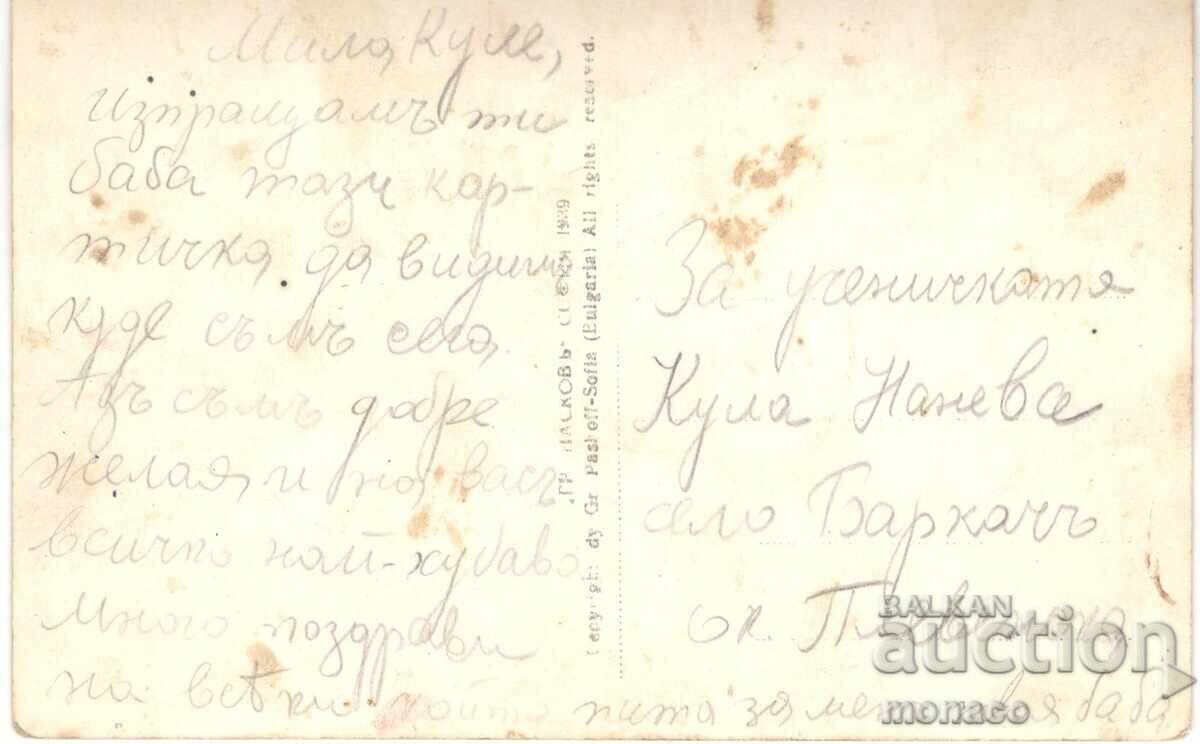 Мила Куле,
изпращамъ ти
баба тази кар-
тичка, да видишъ
куде съмъ сега.
Азъ съмъ добре
желая и на васъ
всичко най-хубаво
Много поздрави
на всѣки който пита за мен баба
ГР. ПАСКОВЪ - СОФИЯ 1939
Copyright dy Gr Pashoff-Sofia (Bulgaria) All rights reserved.
За ученичката
Кула Нанева
село Баркачъ
ок. Плѣвенска
BALKAN
auction
monaco